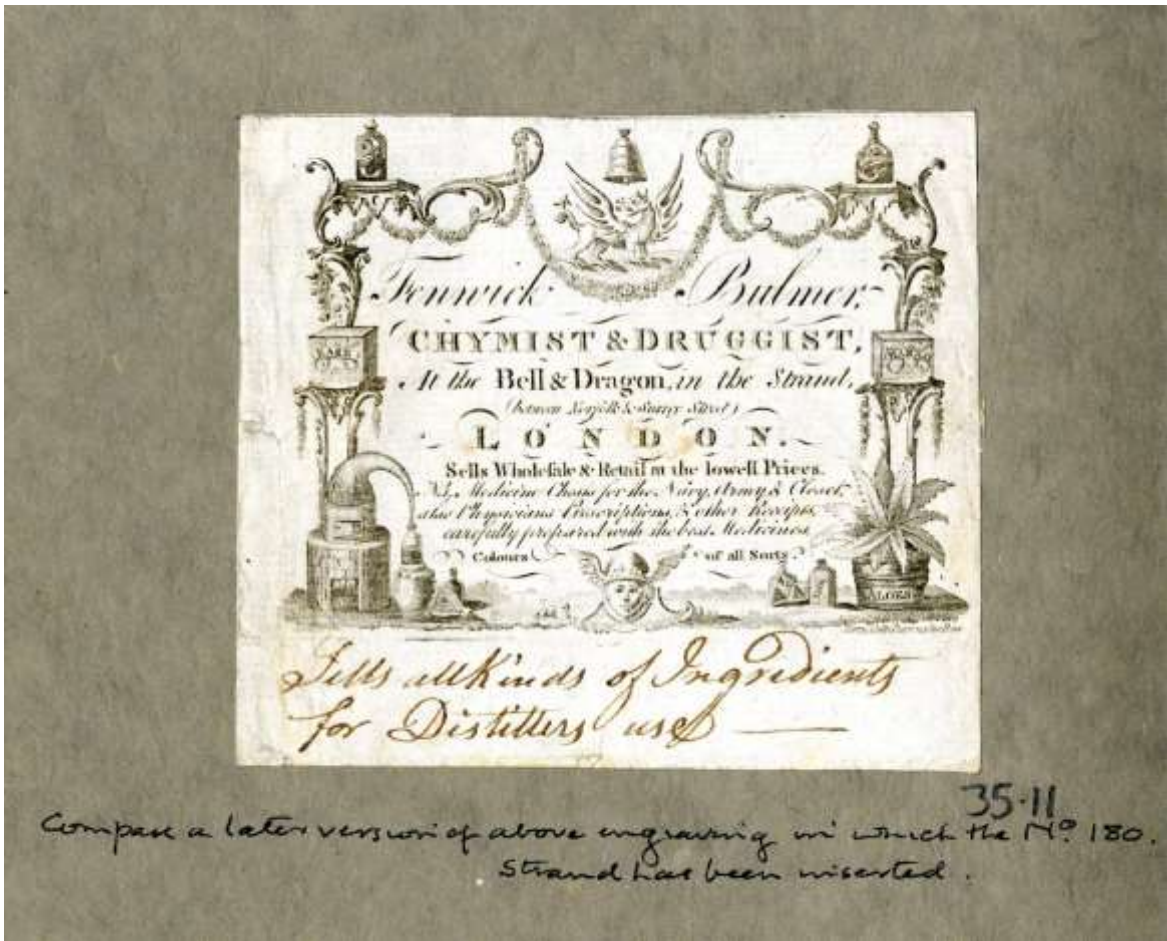 Fenwick Bulmer,
CHYMIST & DRUGGIST,
At the Bell & Dragon, in the Strand,
(between Norfolk & Surry Street)
LONDON.
Sells Wholesale & Retail at the lowest Prices.
NB. Medicine Chests for the Navy, Army, & Closet,
also Physicians Prescriptions, & other Receipts,
carefully prepared with the best Medicines
Colours of all Sorts
BARK
ALOES
Sells all Kinds of Ingredients
for Distillers use —
35·11
Compare a later version of above engraving in which the No 180.
Strand has been inserted.